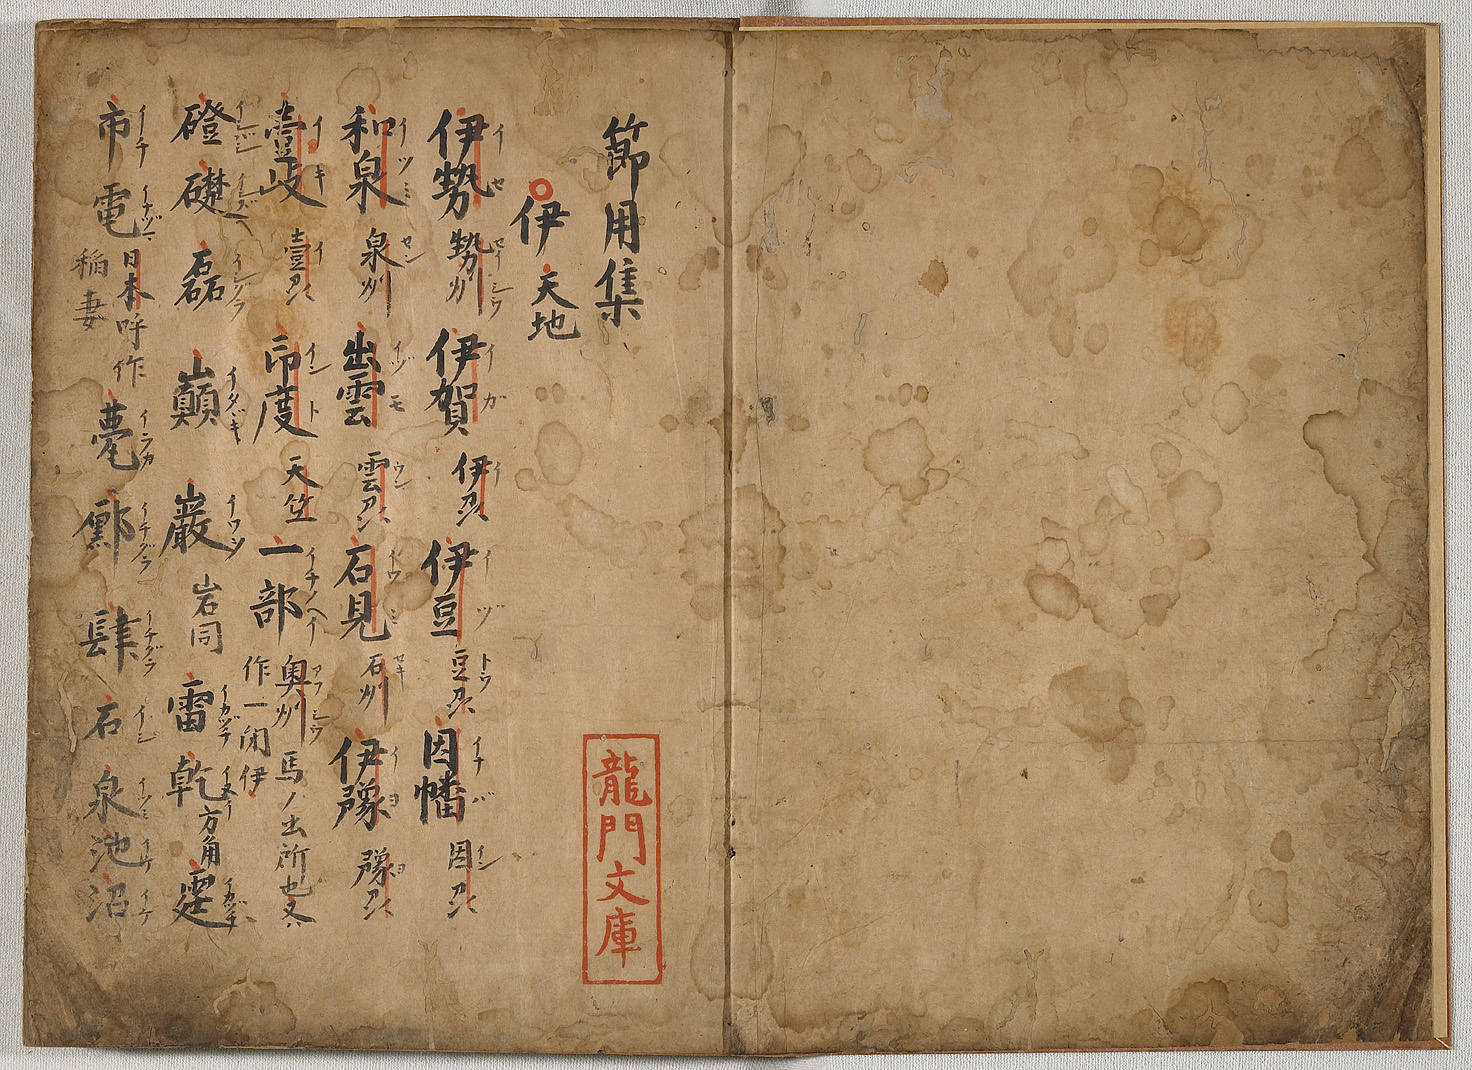 節用集
伊 天地
伊勢 勢州 伊賀 伊州 伊豆 豆州 因幡 因州
イセ セイシウ イガ イ イヅ トウ イナバ イン
和泉 泉州 出雲 雲州 石見 石州 伊豫 豫州
イツミ セン イヅモ ウン イワミ セキ イヨ ヨ
壹岐 壹州 印度 天竺 一部 奥州 馬ノ出所也又
作一閉伊
イキ イ イント イチノヘイ アフシウ
磴 礎 磊 巔 巌 岩同 雷 乾 方角 霆
イシバシ イシズヘ イシノラ イタダキ イワヲ イカヅチ イヌイ イカヅチ
市 電 日本呼作 甍 鄽 肆 石 泉 池 沼
稲妻
イチ イナヅマ イラカ イチグラ イチグラ イシ イヅミ イケ イケ
龍門文庫